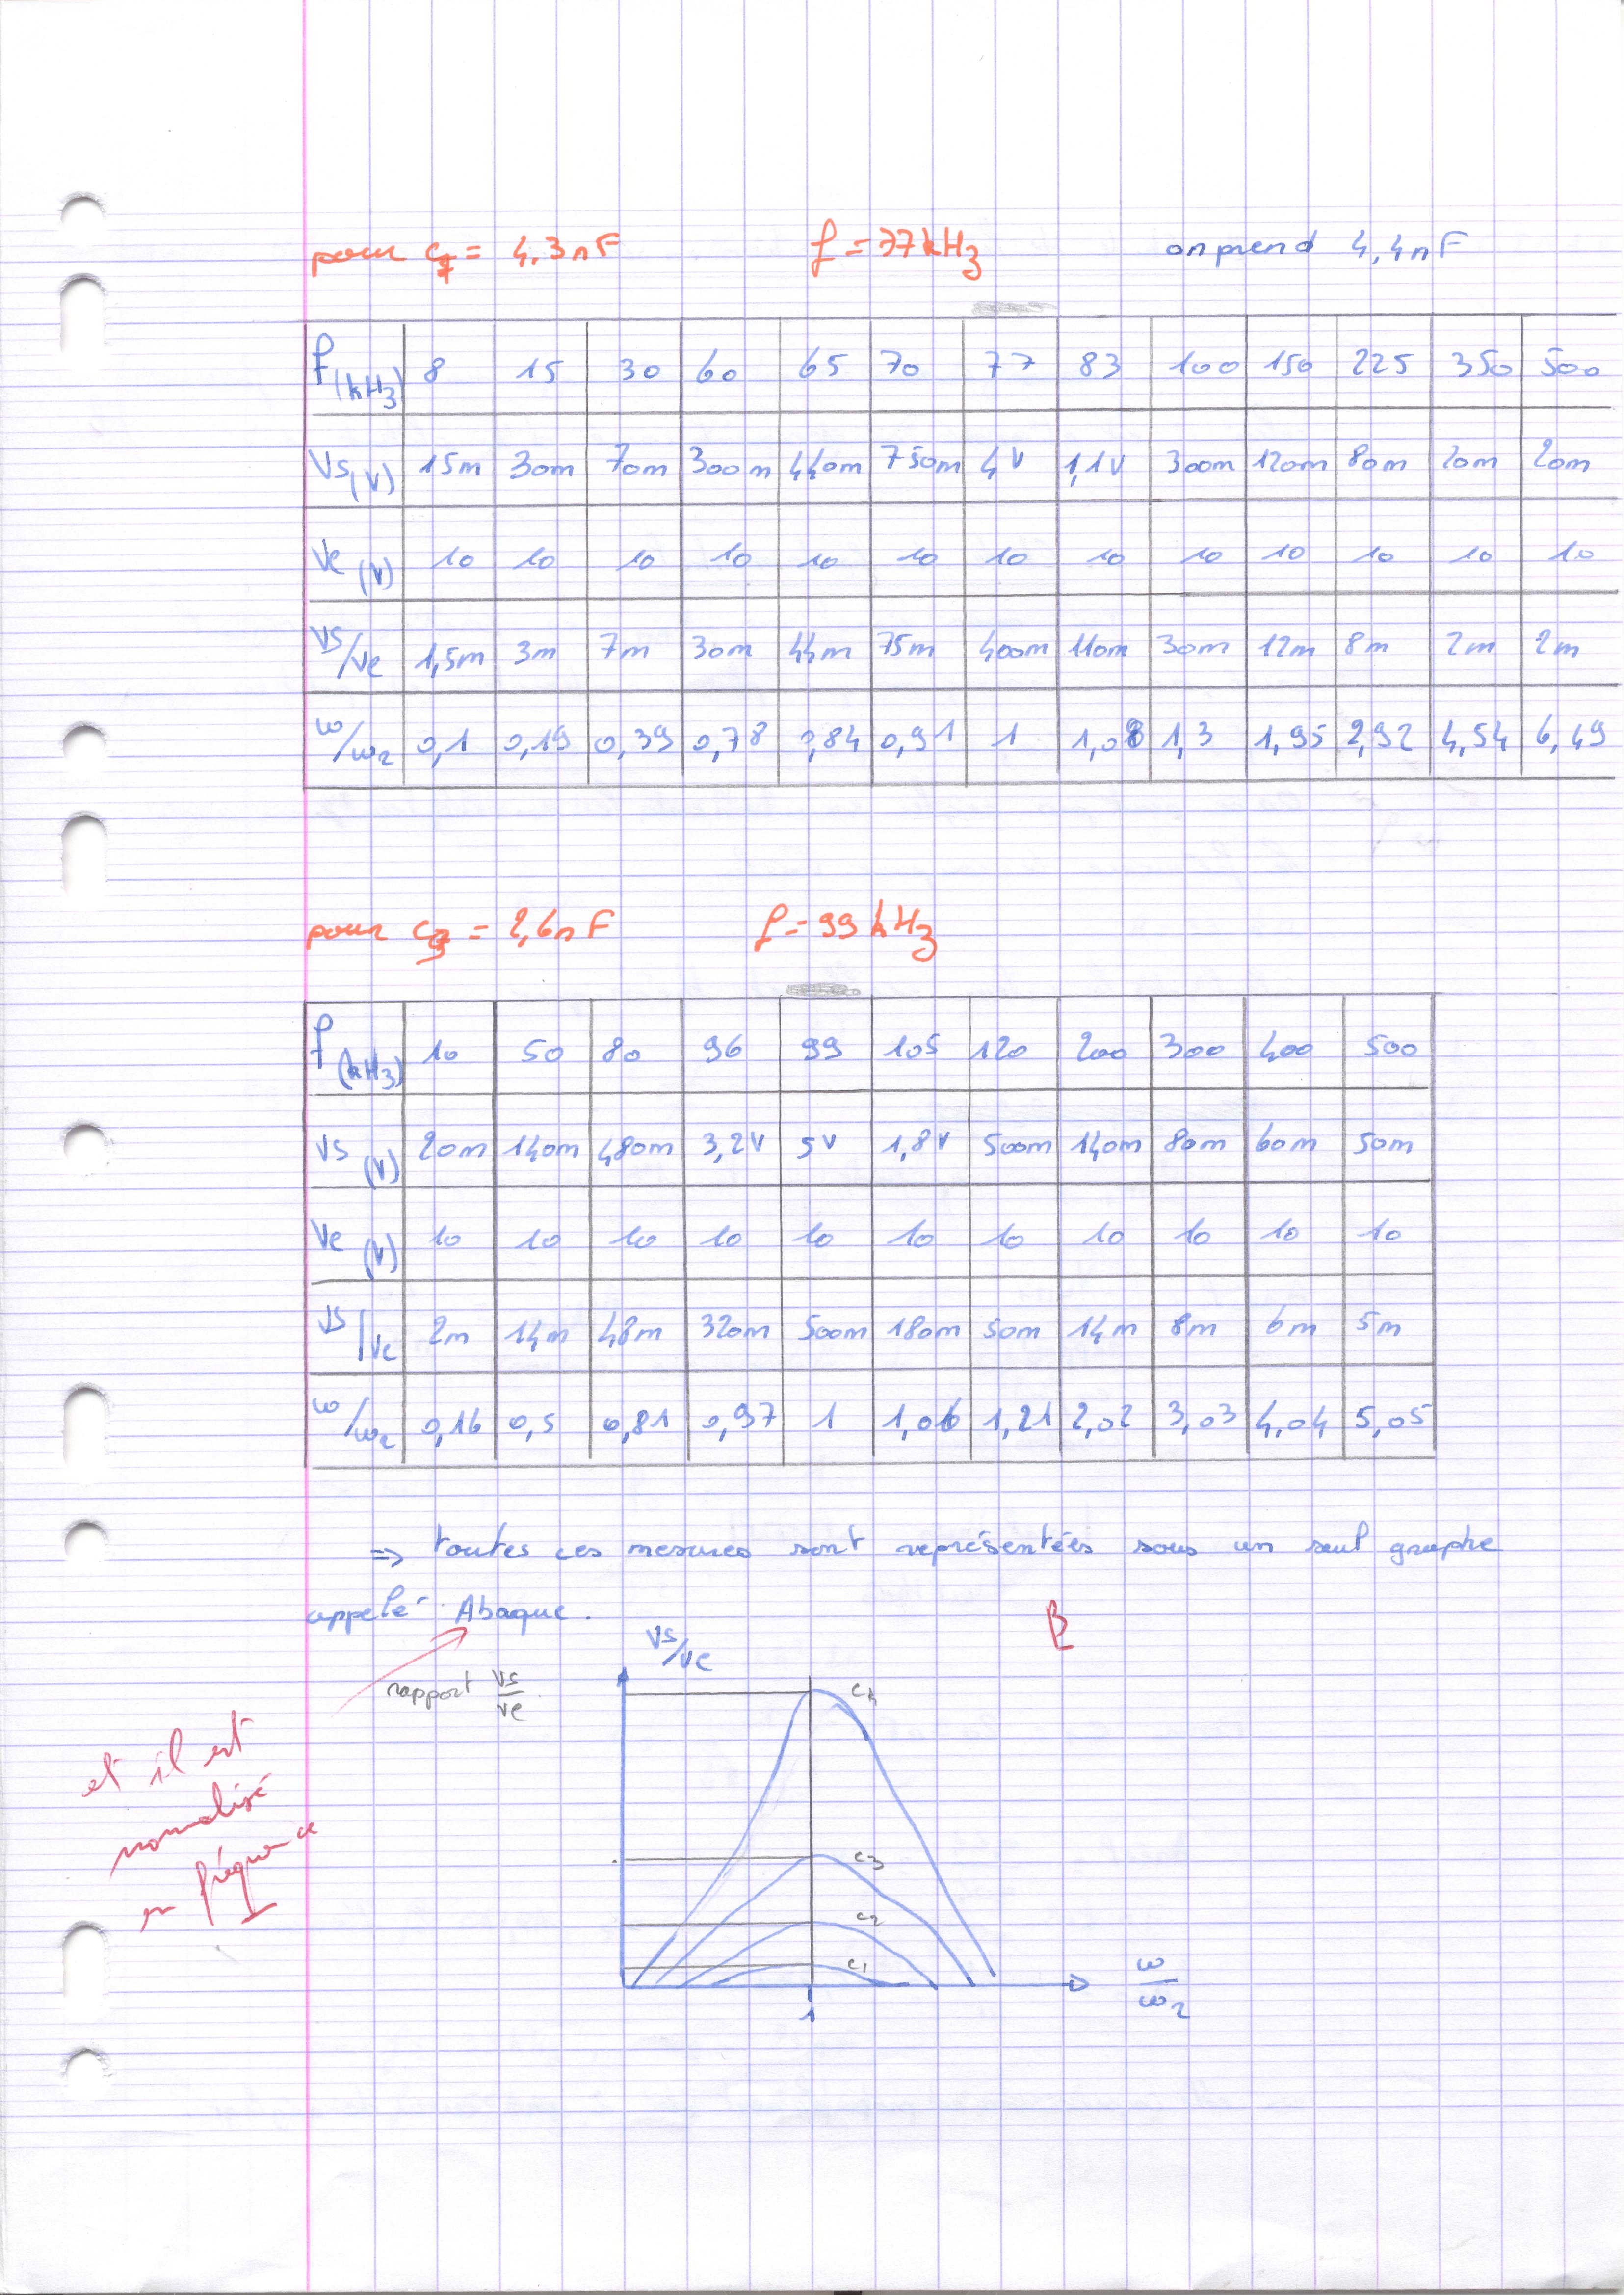 pour C = 4,3nF f = 77kHz on prend 4,4nF
f(kHz) 8 15 30 60 65 70 77 83 100 150 225 350 500
Vs(V) 15m 30m 70m 300m 440m 750m 4V 1,1V 300m 120m 80m 20m 20m
Ve(V) 10 10 10 10 10 10 10 10 10 10 10 10 10
Vs/Ve 1,5m 3m 7m 30m 44m 75m 400m 110m 30m 12m 8m 2m 2m
ω/ω2 0,1 0,19 0,39 0,78 0,84 0,91 1 1,08 1,3 1,95 2,92 4,54 6,49
pour C3 = 2,6nF f = 99kHz
f(kHz) 10 50 80 96 99 105 120 200 300 400 500
Vs(V) 20m 140m 480m 3,2V 5V 1,8V 500m 140m 80m 60m 50m
Ve(V) 10 10 10 10 10 10 10 10 10 10 10
Vs/Ve 2m 14m 48m 320m 500m 180m 50m 14m 8m 6m 5m
ω/ω2 0,16 0,5 0,81 0,97 1 1,06 1,21 2,02 3,03 4,04 5,05
⇒ toutes ces mesures sont représentées sous un seul graphe
appelé Abaque.
B
Vs/Ve
rapport Vs/Ve
et il est
normalisé
en fréquence
C4
C3
C2
C1
1
ω/ω2